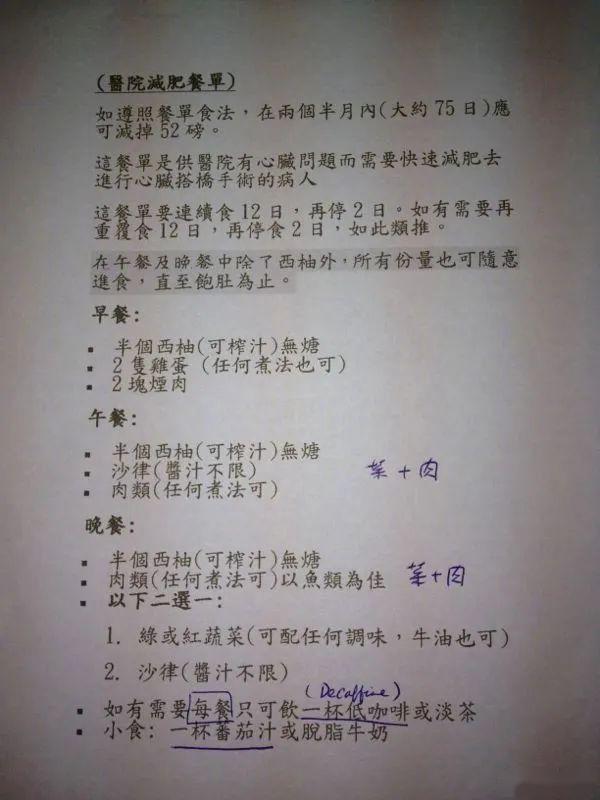 (醫院減肥餐單)
如遵照餐單食法，在兩個半月內(大約75日)應
可減掉52磅。
這餐單是供醫院有心臟問題而需要快速減肥去
進行心臟搭橋手術的病人
這餐單要連續食12日，再停2日。如有需要再
重覆食12日，再停食2日，如此類推。
在午餐及晚餐中除了西柚外，所有份量也可隨意
進食，直至飽肚為止。
早餐:
▪ 半個西柚(可榨汁)無糖
▪ 2隻雞蛋 (任何煮法也可)
▪ 2塊煙肉
午餐:
▪ 半個西柚(可榨汁)無糖
▪ 沙律(醬汁不限) 菜+肉
▪ 肉類(任何煮法可)
晚餐:
▪ 半個西柚(可榨汁)無糖
▪ 肉類(任何煮法可)以魚類為佳 菜+肉
▪ 以下二選一:
1. 綠或紅蔬菜(可配任何調味，牛油也可)
2. 沙律(醬汁不限)
(Decaffine)
▪ 如有需要每餐只可飲一杯低咖啡或淡茶
▪ 小食: 一杯蕃茄汁或脫脂牛奶